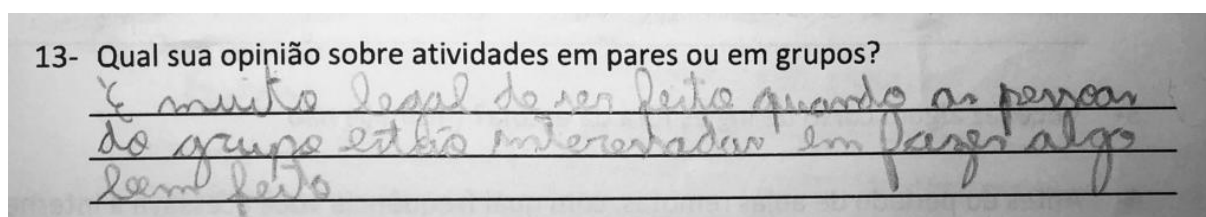 13- Qual sua opinião sobre atividades em pares ou em grupos?
É muito legal de ser feito quando as pessoas
do grupo estão interessadas em fazer algo
bem feito